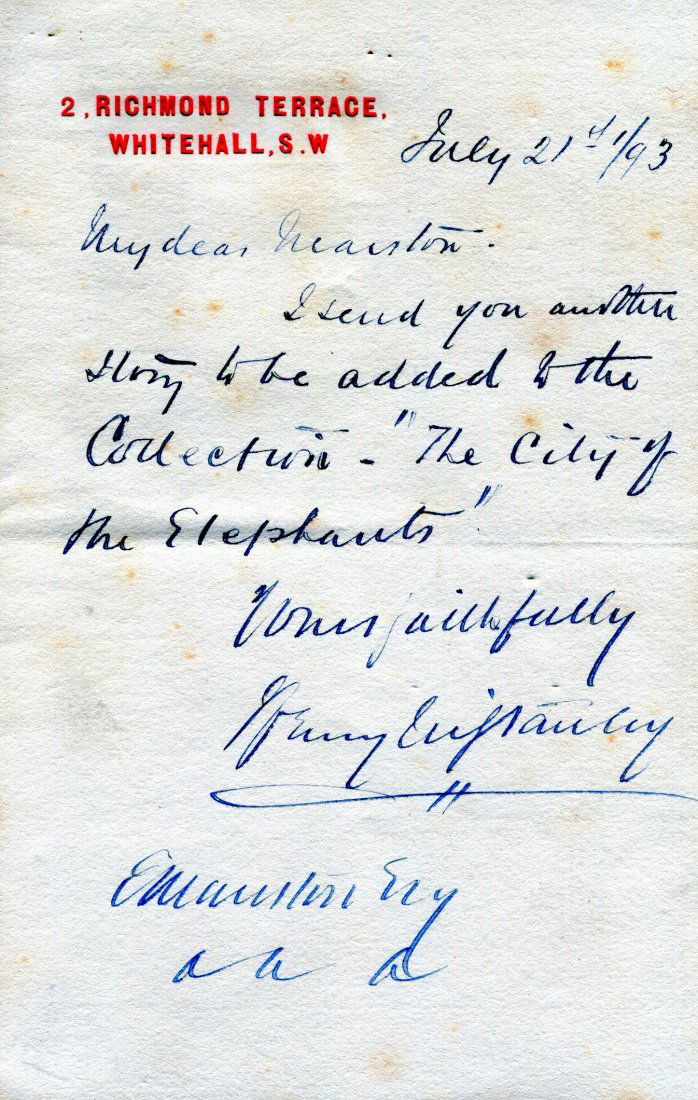 2, RICHMOND TERRACE,
WHITEHALL, S.W
July 21st/93
My dear Marston.
I send you another
story to be added to the
Collection - "The City of
the Elephants"
Yours faithfully
Henry M Stanley
E Marston Esq